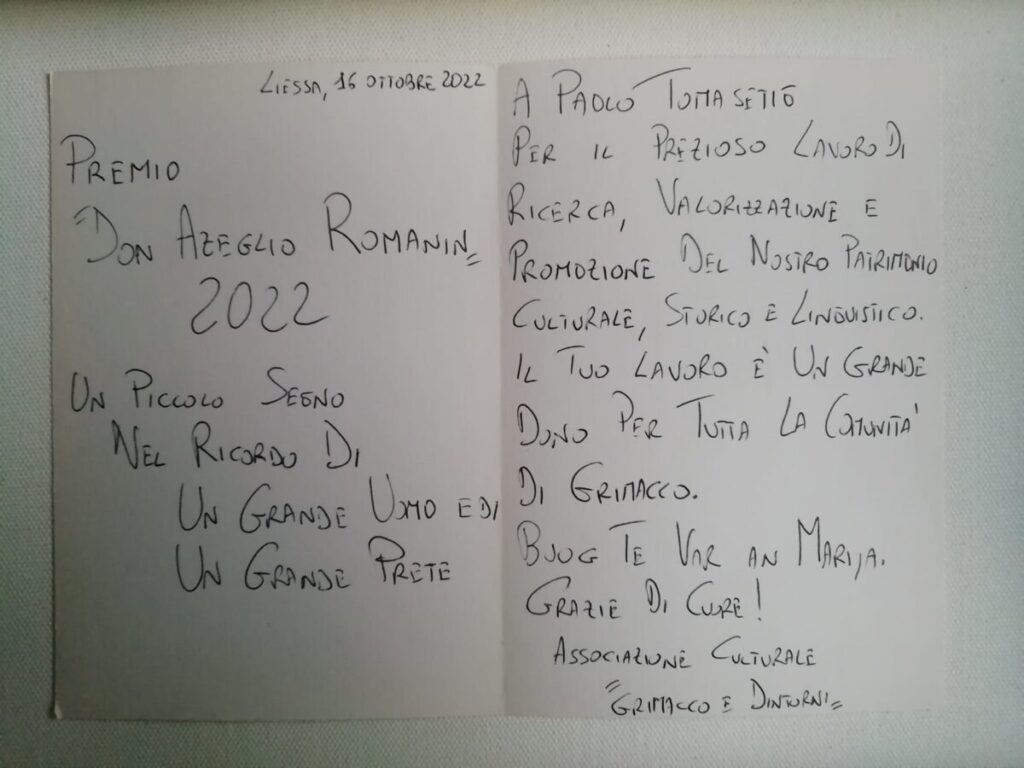 Liessa, 16 ottobre 2022
Premio
"Don Azeglio Romanin"
2022
Un Piccolo Segno
Nel Ricordo Di
Un Grande Uomo e di
Un Grande Prete
A Paolo Tomasetig
Per il Prezioso Lavoro Di
Ricerca, Valorizzazione e
Promozione Del Nostro Patrimonio
Culturale, Storico e Linguistico.
Il Tuo Lavoro è Un Grande
Dono Per Tutta La Comunità
Di Grimacco.
Buog Te Var an Marija.
Grazie Di Cuore!
Associazione Culturale
"Grimacco e Dintorni"